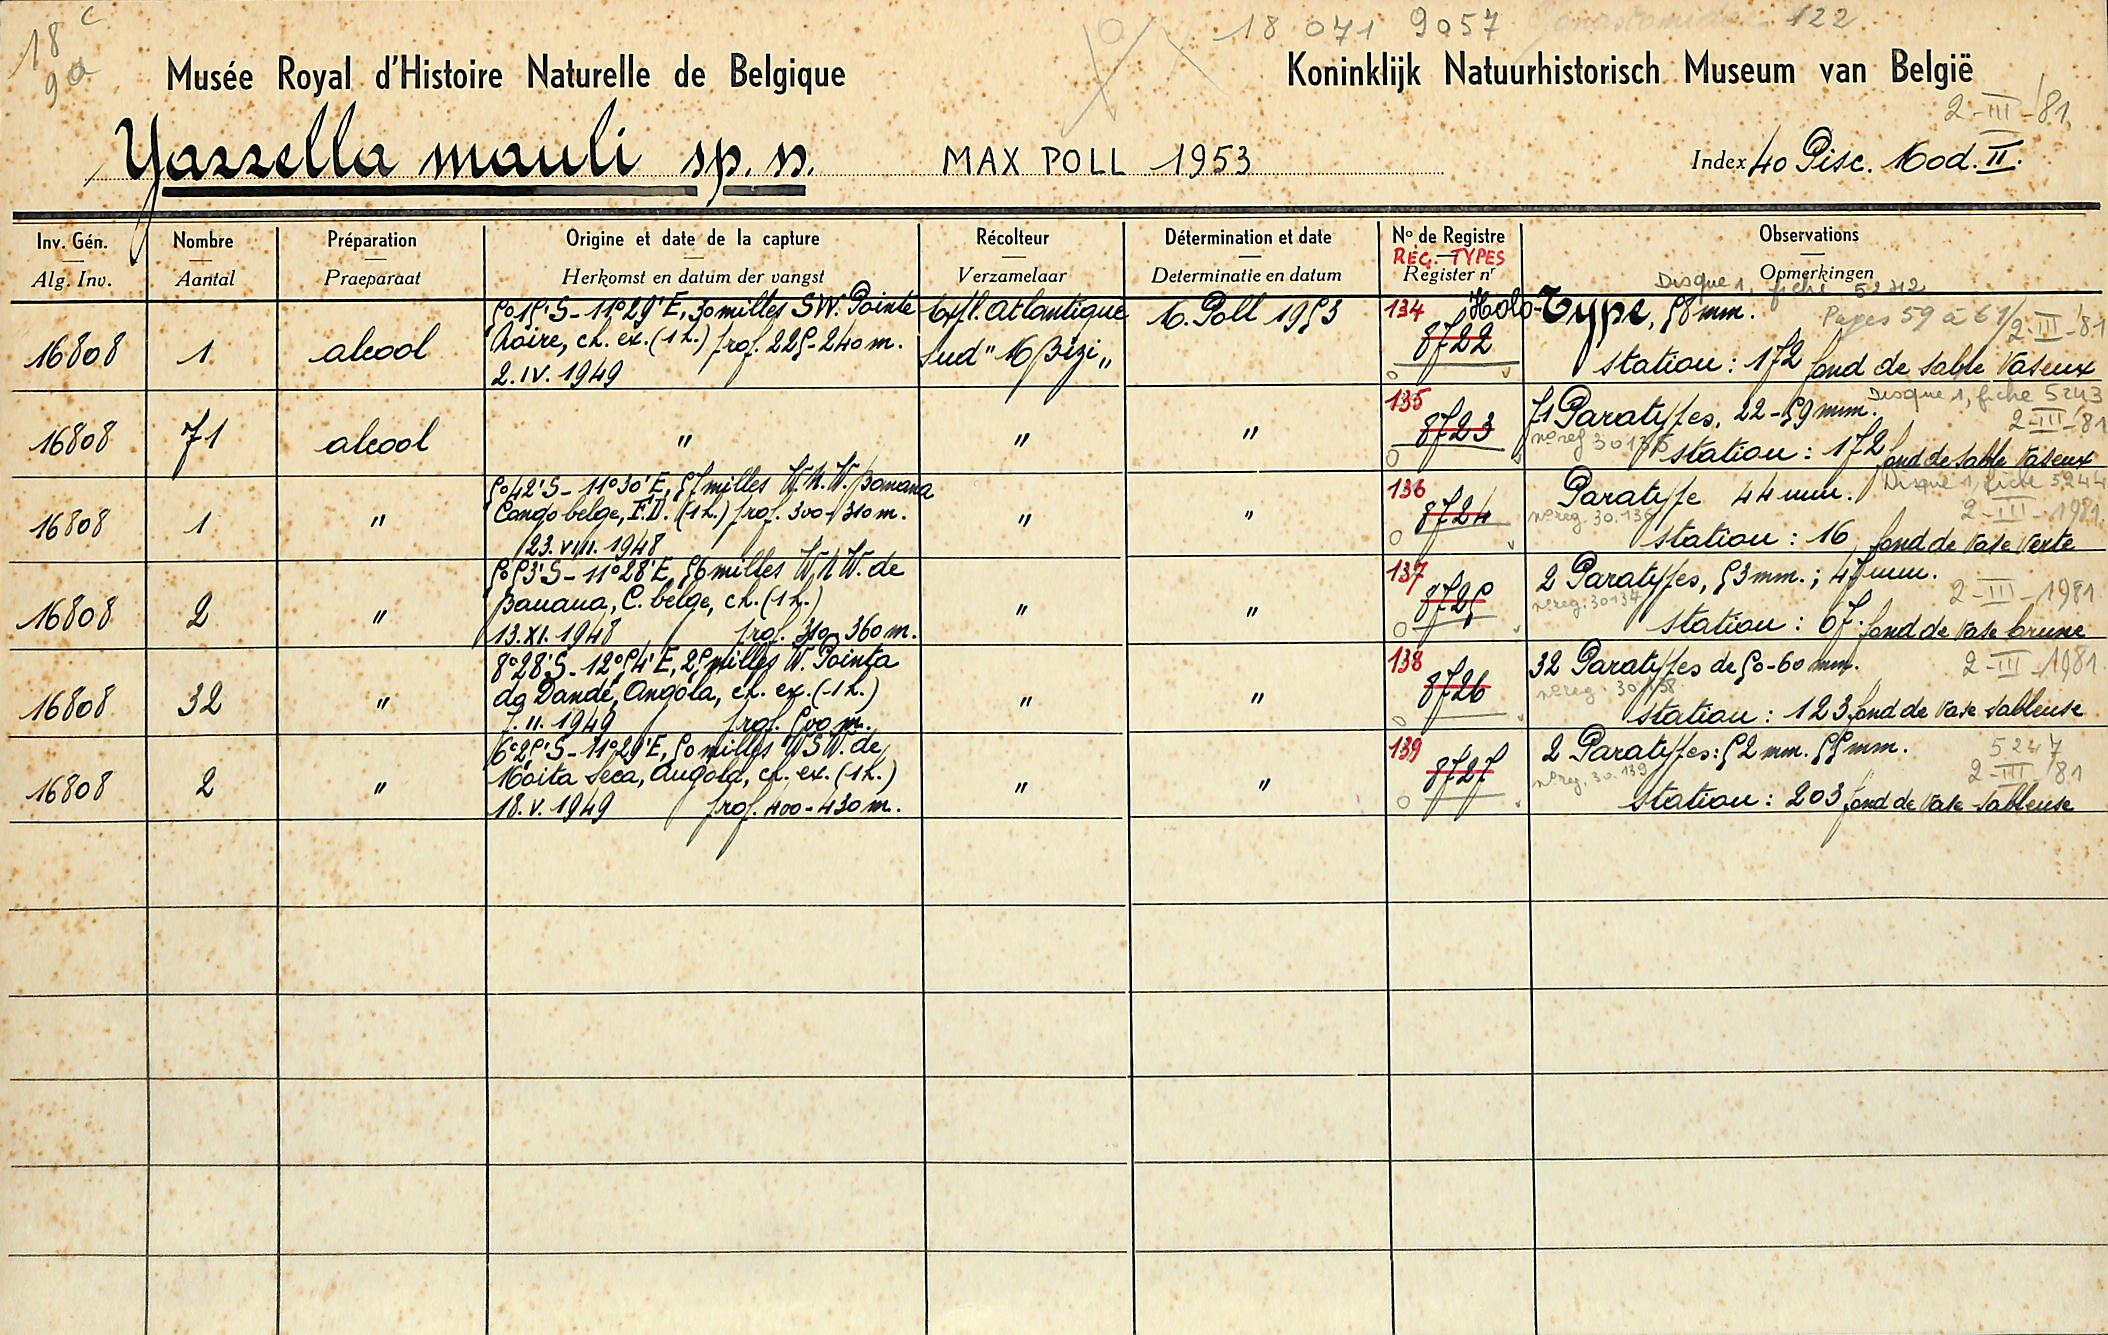 18 c
90
18 071 9057 Gonostomidae 122
Musée Royal d'Histoire Naturelle de Belgique
Koninklijk Natuurhistorisch Museum van België
2-III-'81
Yarrella mauli sp. n. MAX POLL 1953
Index 40 Pisc. Mod. II.
Inv. Gén. Nombre Préparation Origine et date de la capture Récolteur Détermination et date No de Registre Observations
REG. TYPES
Alg. Inv. Aantal Praeparaat Herkomst en datum der vangst Verzamelaar Determinatie en datum Register nr Opmerkingen
Disque 1, fiche 5242
16808 1 alcool
5°15'S - 11°29'E, 30 milles SW. Pointe
Noire, ch. ex. (1 h.) prof. 225-240 m.
2.IV.1949
Expl. Atlantique
Sud "M'Bizi"
M. Poll 1953
134
8722
Holo-Type, 58 mm.
Pages 59 à 61
2-III-'81
station : 172 fond de sable vaseux
16808 71 alcool " " "
135
8723
71 Paratypes, 22-59 mm.
Disque 1, fiche 5243
2-III-'81
no reg 30135
station : 172 fond de sable vaseux
16808 1 "
5°42'S - 11°30'E, 57 milles W.N.W. Banana
Congo belge, F.D. (1 h.) prof. 300-310 m.
23.VIII.1948
" "
136
8724
Paratype 44 mm.
Disque 1, fiche 5244
2-III-1981.
no reg. 30.136
station : 16 fond de vase verte
16808 2 "
5°53'S - 11°28'E, 56 milles W N W. de
Banana, C. belge, ch. (1 h.)
13.XI.1948 prof. 310-360 m.
" "
137
8725
2 Paratypes, 53 mm. ; 47 mm.
2-III-1981
no reg: 30137
station : 67. fond de vase brune
16808 32 "
8°28'S - 12°54'E, 25 milles W. Pointa
do Dande, Angola, ch. ex. (1 h.)
7.II.1949 prof. 500 m.
" "
138
8726
32 Paratypes de 50-60 mm.
2-III-1981
no reg. 30.138
station : 123 fond de vase sableuse
16808 2 "
6°25'S - 11°29'E, 50 milles W S W. de
Moita Seca, Angola, ch. ex. (1 h.)
18.V.1949 prof. 400-430 m.
" "
139
8727
2 Paratypes: 52 mm. 55 mm.
5247
2-III-'81
no reg. 30.139
station : 203 fond de vase sableuse